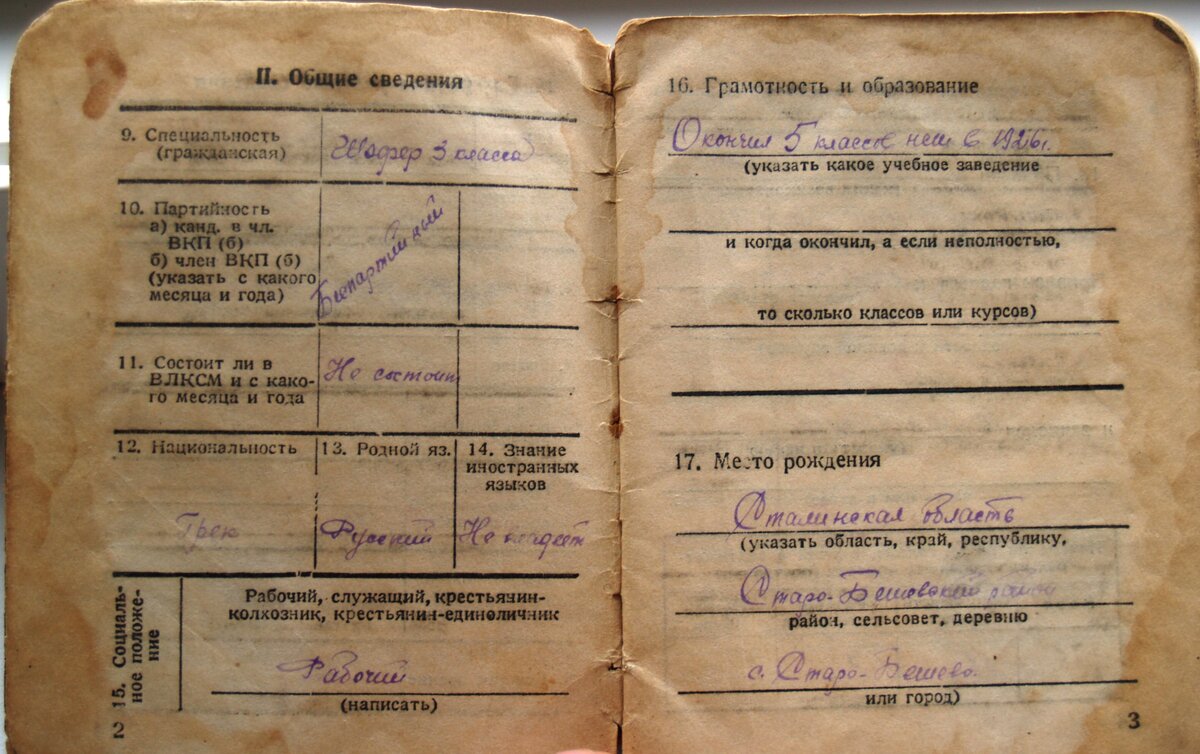 II. Общие сведения
9. Специальность
(гражданская)
Шофер 3 класса
10. Партийность
а) канд. в чл.
ВКП (б)
б) член ВКП (б)
(указать с какого
месяца и года)
Беспартийный
11. Состоит ли в
ВЛКСМ и с како-
го месяца и года
Не состоит
12. Национальность
Грек
13. Родной яз.
Русский
14. Знание
иностранных
языков
Не владеет
15. Социаль-
ное положе-
ние
Рабочий, служащий, крестьянин-
колхозник, крестьянин-единоличник
Рабочий
(написать)
2
16. Грамотность и образование
Окончил 5 классов нсш в 1926г.
(указать какое учебное заведение
и когда окончил, а если неполностью,
то сколько классов или курсов)
17. Место рождения
Сталинская область
(указать область, край, республику,
Старо-Бешевский район
район, сельсовет, деревню
с. Старо-Бешево
или город)
3